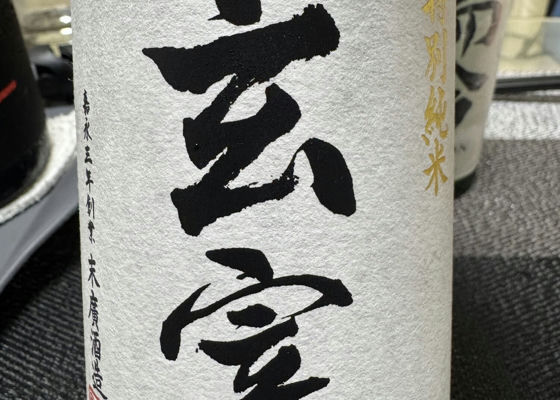 特別純米
玄宰
嘉永三年創業 末廣酒造